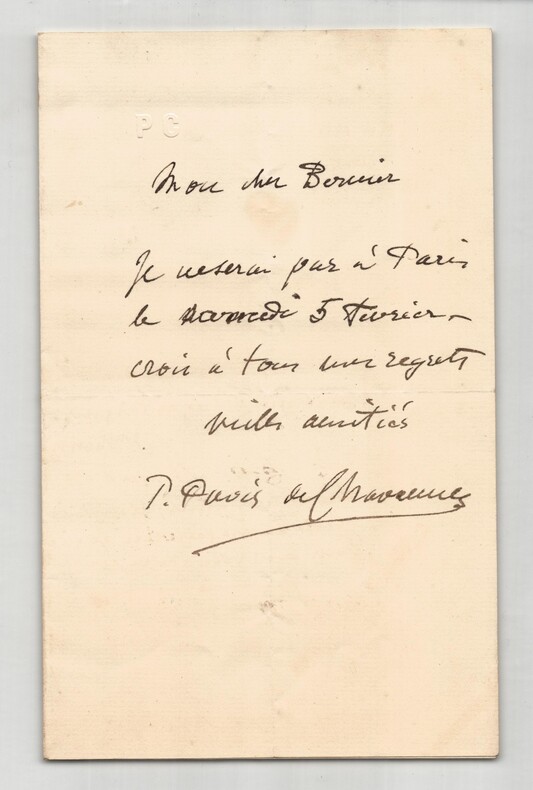 PC
Mon cher Bernier
Je ne serai pas à Paris
le samedi 5 février –
crois à tous mes regrets
mille amitiés
P. Puvis de Chavannes